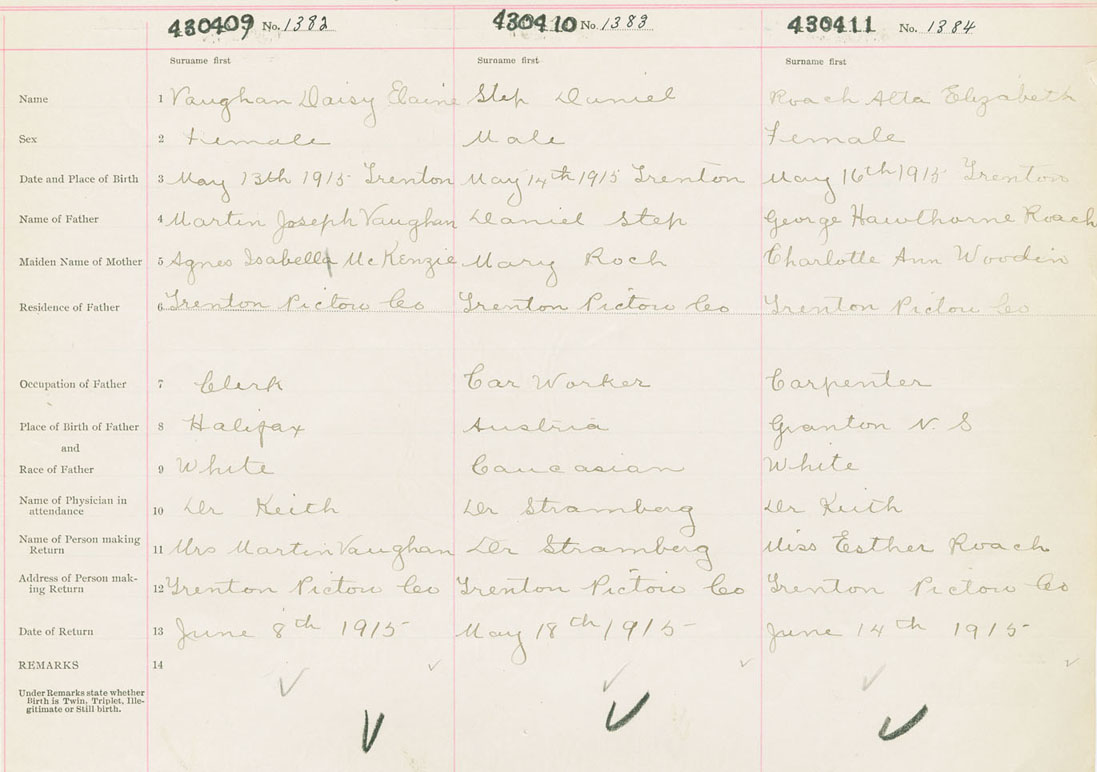 430409 No. 1382 430410 No. 1383 430411 No. 1384
Surname first Surname first Surname first
Name 1 Vaughan Daisy Elaine Step Daniel Roach Alta Elizabeth
Sex 2 Female Male Female
Date and Place of Birth 3 May 13th 1915 Trenton May 14th 1915 Trenton May 16th 1915 Trenton
Name of Father 4 Martin Joseph Vaughan Daniel Step George Hawthorne Roach
Maiden Name of Mother 5 Agnes Isabella McKenzie Mary Roch Charlotte Ann Woodin
Residence of Father 6 Trenton Pictou Co Trenton Pictou Co Trenton Pictou Co
Occupation of Father 7 Clerk Car Worker Carpenter
Place of Birth of Father 8 Halifax Austria Granton N. S
and
Race of Father 9 White Caucasian White
Name of Physician in
attendance 10 Dr Keith Dr Stramberg Dr Keith
Name of Person making
Return 11 Mrs Martin Vaughan Dr Stramberg Miss Esther Roach
Address of Person mak-
ing Return 12 Trenton Pictou Co Trenton Pictou Co Trenton Pictou Co
Date of Return 13 June 8th 1915 May 18th 1915 June 14th 1915
REMARKS 14
Under Remarks state whether
Birth is Twin, Triplet, Ille-
gitimate or Still birth.